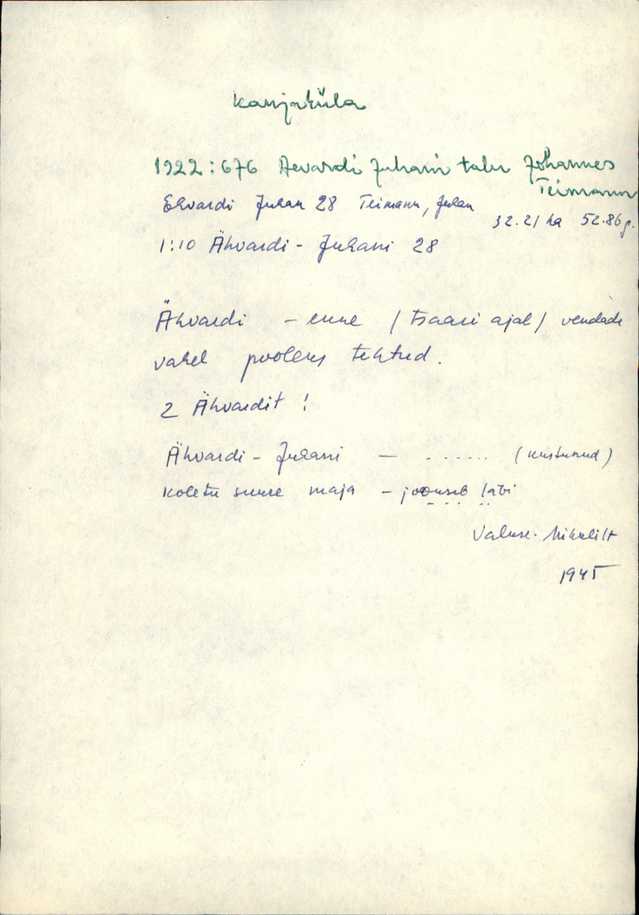 Karjaküla
1922:676 Aevardi Juhani talu Johannes
Teimann
Ehvardi Juhan 28 Teimann, Juhan
32.21 ha 52.86 g.
1:10 Ähvardi - Juhani 28
Ähvardi - enne / tsaari ajal / vendade
vahel pooleks tehtud.
2 Ähvardit !
Ähvardi - Juhani - ...... (kustunud)
koletu suure maja - joouseb läbi
1945